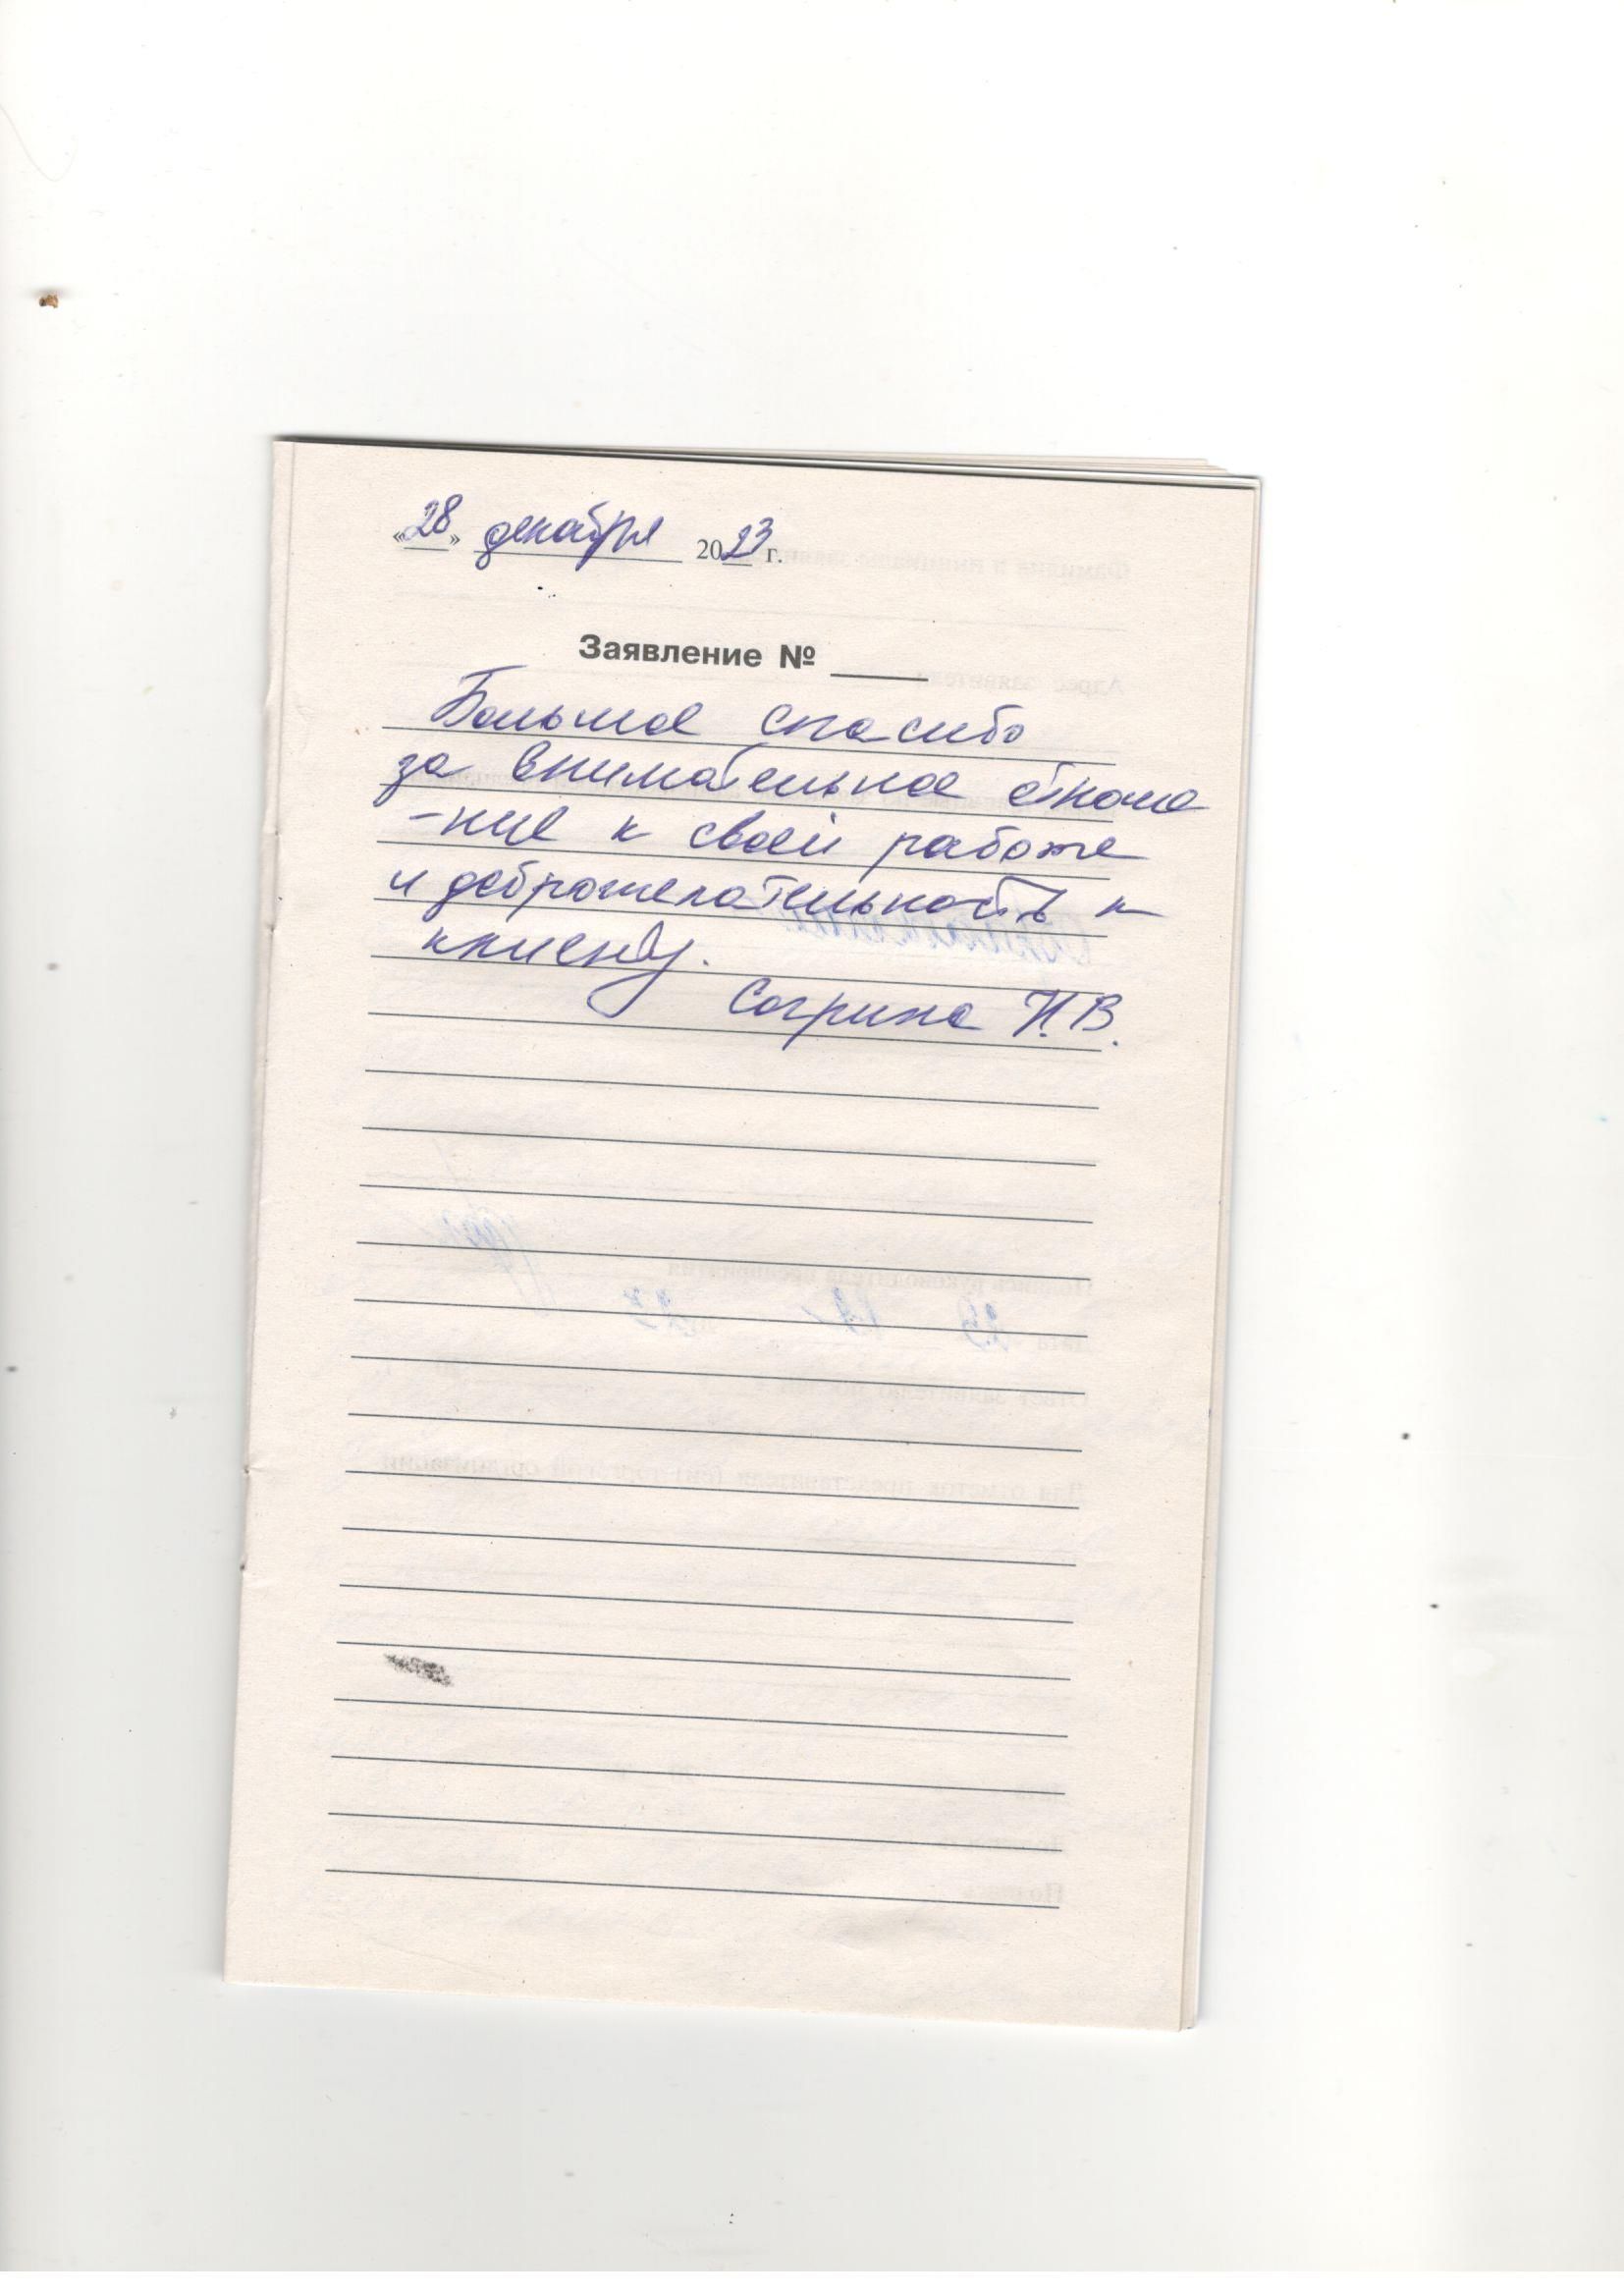 «28» декабря 2023 г.
Заявление № ____
Большое спасибо
за внимательное отноше
-ние к своей работе
и доброжелательность к
клиенту.
Согрина И.В.